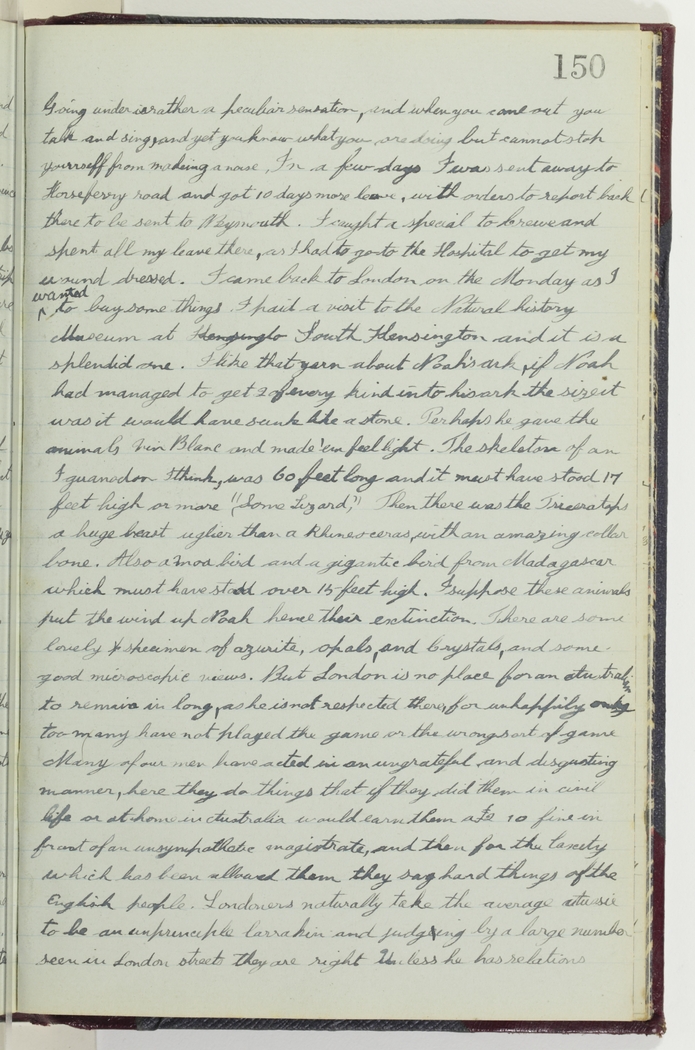 150
Going under is rather a peculiar sensation, and when you come out you
talk and sing, and yet you know what you are doing but cannot stop
yourself from making a noise. In a few days I was sent away to
Horseferry road and got 10 days more leave, with orders to report back
there to be sent to Weymouth. I caught a special to Crewe and
spent all my leave there, as I had to go to the Hospital to get my
wound dressed. I came back to London on the Monday as I
wanted
to buy some things I paid a visit to the Natural history
Museum at Kensingto South Kensington and it is a
splendid one. I like that yarn about Noah's ark, if Noah
had managed to get 2 of every kind into his ark the size it
was it would have sunk like a stone. Perhaps he gave the
animals Vin Blanc and made 'em feel light. The skeleton of an
Iguanodon I think, was 60 feet long and it must have stood 17
feet high or more "(Some Lizard,") Then there was the Triceratops
a huge beast uglier than a Rhinoceras, with an amazing collar
bone. Also a moa bird and a gigantic bird from Madagascar
which must have stood over 15 feet high. I suppose these animals
put the wind up Noah hence their extinction. There are some
lovely specimen of azurite, opals, and Crystals, and some
good microscopic views. But London is no place for an Australian
to remain in long, as he is not respected there, for unhappily only
too many have not played the game or the wrong sort of game
Many of our men have acted in an ungrateful, and disgusting
manner, here they do things that if they did them in civil
life or at home in Australia would earn them a £ 10 fine in
front of an unsympathetic magistrate, and then for the laxity
which has been allowed them they say hard things of the
English people. Londoners naturally take the average Aussie
to be an unprinciple larrakin and judging by a large number
seen in London streets they are right Unless he has relations